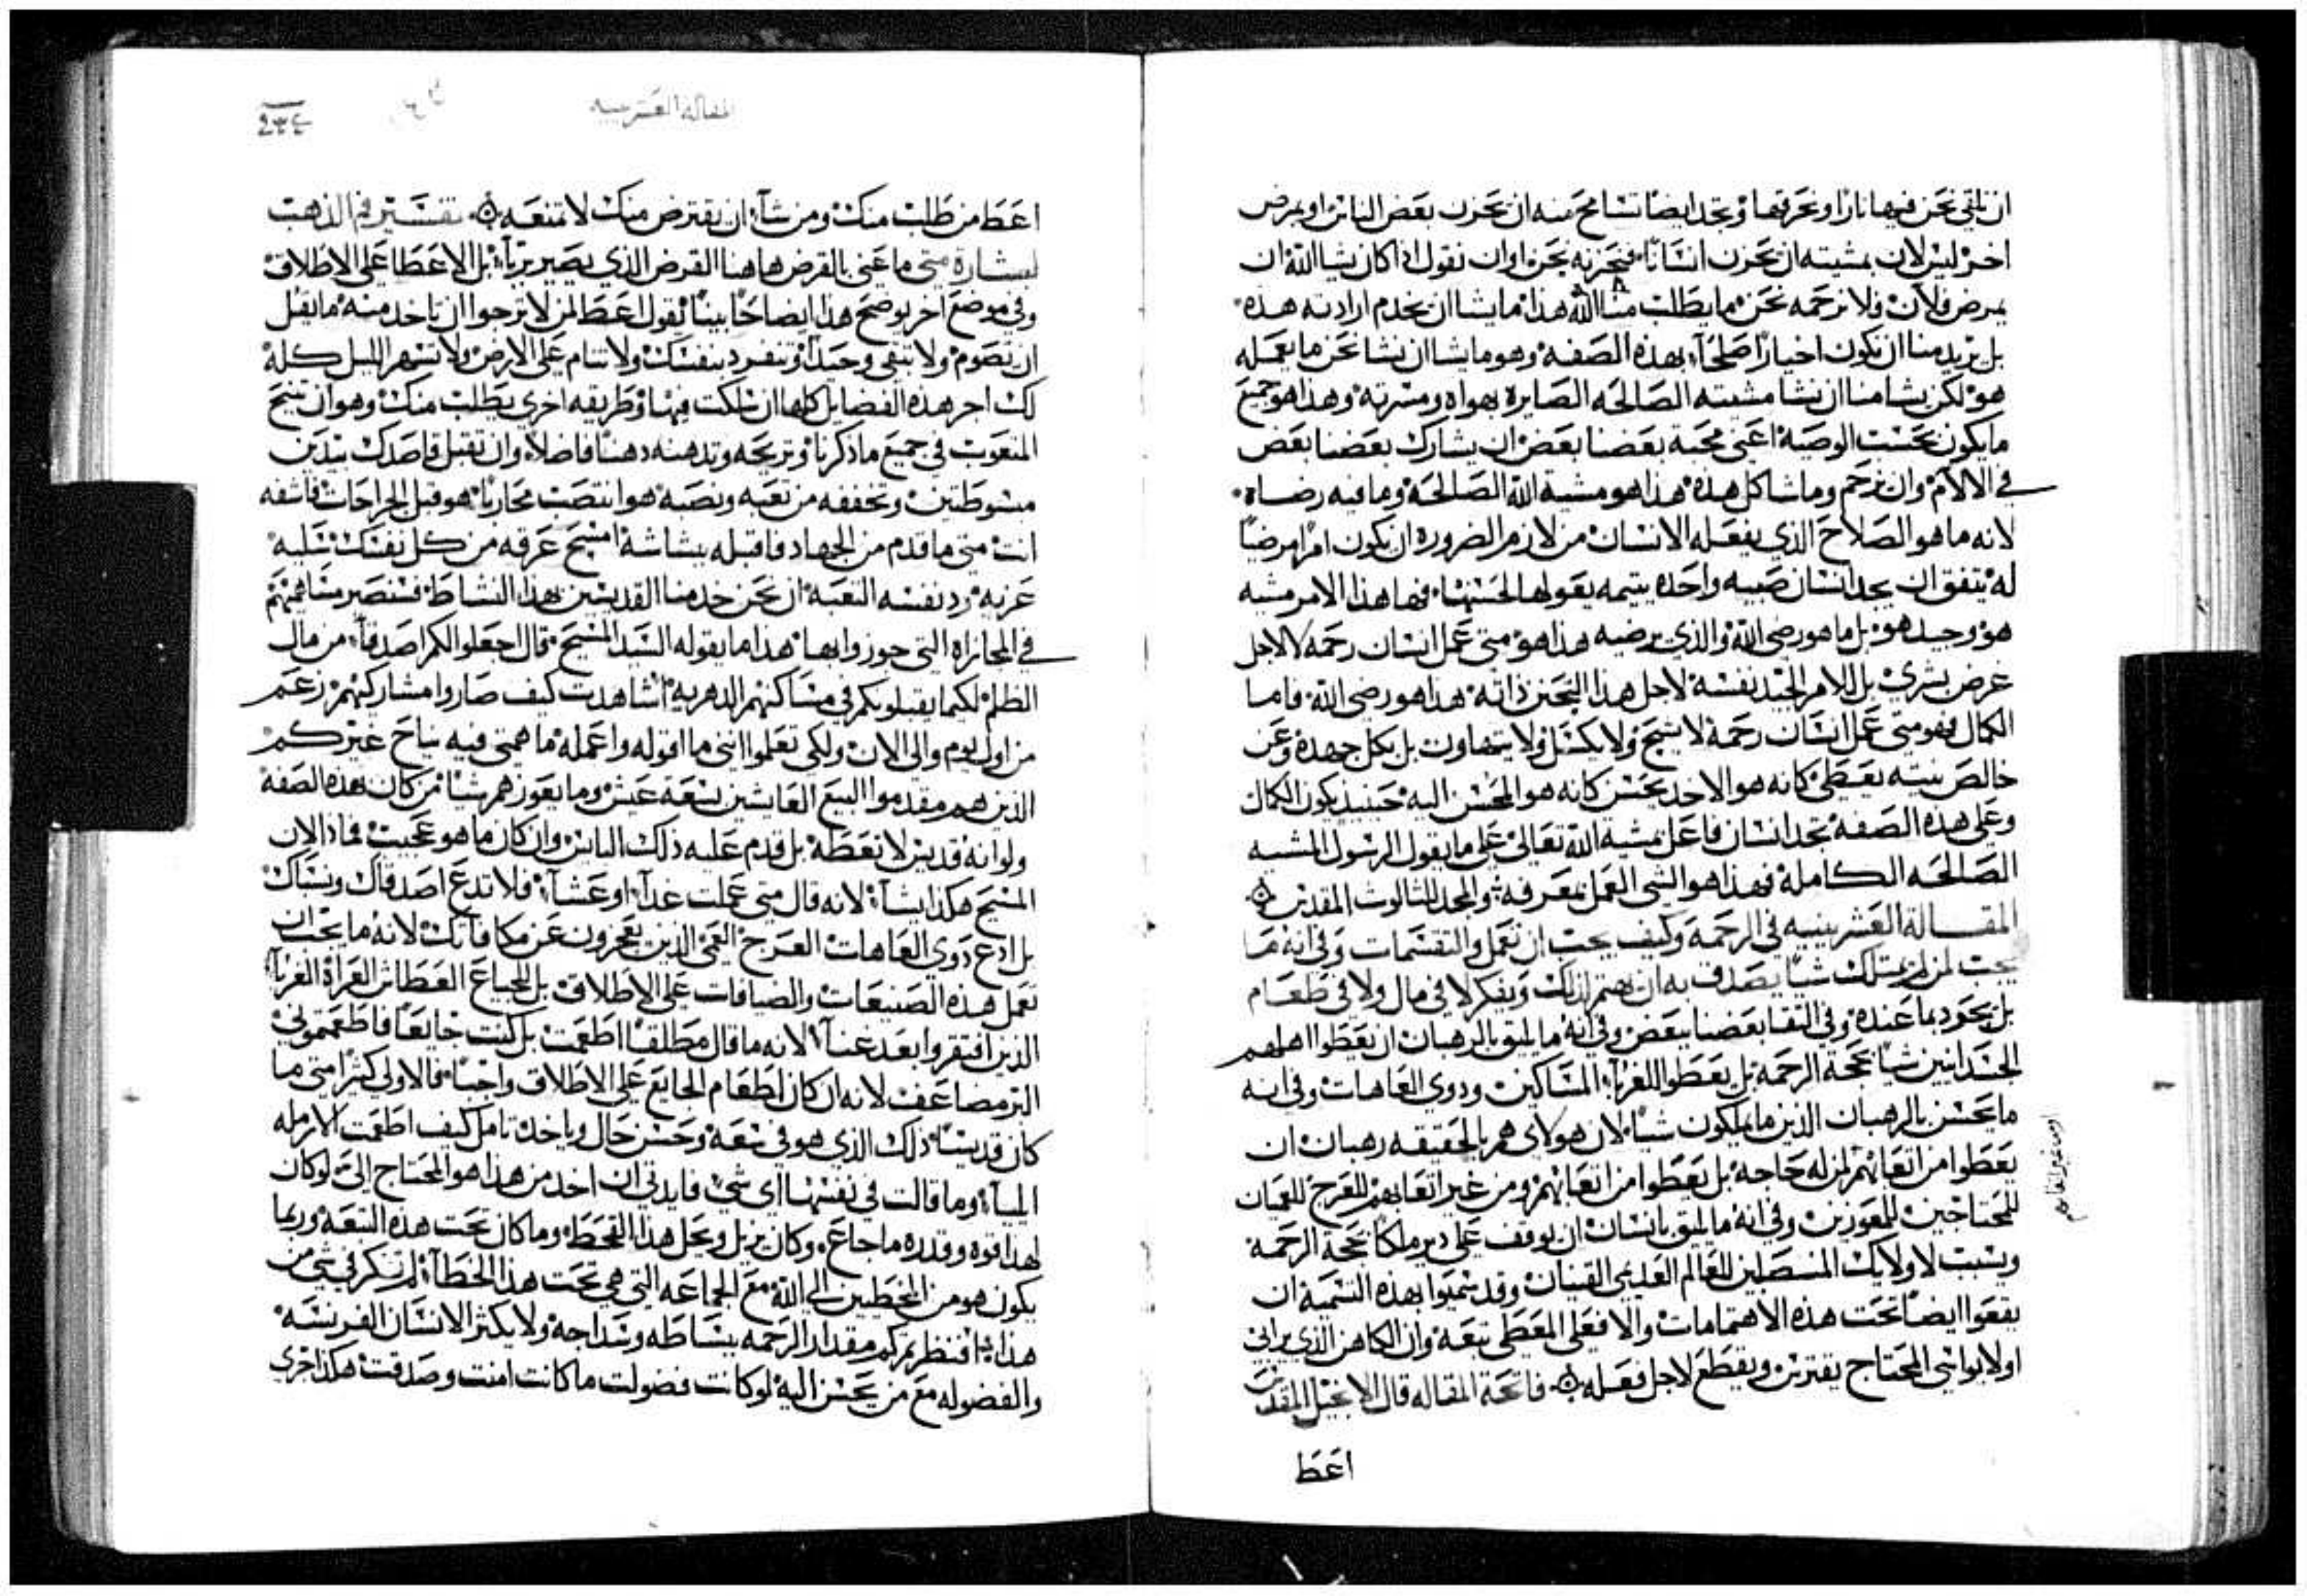 ان نلقي نحن فيها نارًا ونحرقها وتجد ايضًا تسامح منه ان نحزن بعض الناس او يمرض
اخر ليس لان بمشيته ان نحزن انسانًا فنحزنه نحن اوان نقول اذا كان يشا الله ان
يمرض فلان فلا نرحمه نحن ما يطلب منا الله هذا ما يشا ان نخدم ارادته هذه
بل يريد منا ان نكون اخيارًا صلحآ بهذه الصفه وهو ما يشا ان نشا نحن ما يعمله
هو لكن يشا منا ان نشا مشيته الصالحه الصايره بهواه ومسرته وهذا هو جميع
ما يكون بحسب الوصيه اعني محبة بعضنا بعض ان يشارك بعضنا بعض
في الالام وان نرحم وما شاكل هذه هذا هو مشية الله الصالحة وما فيه رضاه
لانه ما هو الصلاح الذي يفعله الانسان من لازم الضروره ان يكون امرًا مرضيًا
له يتفق ان يجد انسان صبيه واحده يتيمه يعولها لحسنها فها هذا الامر مشيه
هو وجيد هو بل ما هو رضى الله والذي يرضيه هذا هو متى عمل انسان رحمه لا لاجل
غرض بشري بل للامر الجيد نفسه لاجل هذا التحنن ذاته هذا هو رضى الله فاما
الكمال فهو متى عمل انسان رحمة لا يشح ولا يكسل ولا يتهاون بل بكل جهده وعن
خالص نيته يعطي كانه هو الاخد يحسن كانه هو المحسن اليه حينيذ يكون الكمال
وعلى هذه الصفه تجد انسان فاعل مشية الله تعالى على ما يقول الرسول المشيه
الصالحه الكاملة فهذا هو الشي العمل بمعرفه والمجد للثالوث المقدس
المقالة العشرينيه في الرحمة وكيف يجب ان تعمل والتقسمات وفي انه ما
يجب لمن لم يمتلك شيا يصدف به ان يهتم لذلك ويفكر لا في مال ولا في طعام
بل يجود بما عنده وفي التقا بعضنا ببعض وفي انه ما يليق بالرهبان ان يعطوا اهلهم
الجسدانيين شيا بحجة الرحمه بل يعطوا للغربآ المساكين ودوي العاهات وفي انه
ما يحسن بالرهبان الذين ما يملكون شيا لان هولاى هم بالحقيقه رهبان ان
يعطوا من اتعابهم لمن له حاجة بل يعطوا من اتعابهم ومن غير اتعابهم للعرج للعميان
للمحتاجين للمعوزين وفي انه ما يليق بانسان ان يوقف على دير ملكًا بحجة الرحمة
ويسبب لاولايك المنصلبين للعالم العديمي القنيان وقد سميوا بهذه التسمية ان
يقعوا ايضًا تحت هذه الاهتمامات والا فعلى المعطي تبعة وان الكاهن الذي يراني
او لا يواسي المحتاج يفترس ويقطع لاجل فعله فاتحة المقاله قال الانجيل المقدس
اعط
او من غير اتعابهم
المقالة العشرينيه
اعط من طلب منك ومن شآ ان يقترض منك لا تمنعه تفسير فم الذهب
لبشارة متى ما عنى بالقرض هاهنا القرض الذي يصير بربآ بل الاعطا على الاطلاق
وفي موضع اخر يوضح هذا ايضاحًا بينًا بقول اعط لمن لا ترجوا ان تاخد منه ما يقبل
ان تصوم ولا تبقى وحيدًا وتنفرد بنفسك ولا تنام على الارض ولا تسهر الليل كله
لك اجر هذه الفضايل كلها ان سلكت فيها وطريقه اخرى يطلب منك وهو ان تنيح
المتعوب في جميع ما ذكرنا وتريحه وتدهنه دهنًا فاضلا وان تقبل قاصدك بيدين
مبسوطتين وتخففه من تعبه ونصبه هو انتصب محاربًا هو قبل الجراحات فاشفه
انت متى ما قدم من الجهاد فاقبله ببشاشة امسح عرقه من كل نفسك سليه
عزيه رد نفسه التعبه ان نحن خدمنا القديسين بهذا النشاط فسنصير مساهمتهم
في المجازاه التي جوزوا بها هذا ما يقوله السيد المسيح قال اجعلوا لكم اصدقآ من مال
الظلم لكيما يقبلونكم في مساكنهم الدهريه اشاهدت كيف صاروا مشاركيهم زعم
من اول يوم والى الان ولكي تعلموا انني ما اقوله واعمله ما همتي فيه نياح غيركم
الذين هم مقدموا البيع العايشين بسعة عيش وما يعوزهم شيا من كان بهذه الصفه
ولو انه قديس لا تعطه بل قدم عليه ذلك الناس وان كان ما هو عجيب فماذا لان
المسيح هكذا يشآ لانه قال متى عملت غدآ او عشآ فلا تدع اصدقاك ونسباك
بل ادع دوي العاهات العرج العمي الذين يعجزون عن مكافاتك لانه ما يجب ان
تعمل هذه الصنيعات والضيافات على الاطلاق بل للجياع العطاش العراة الغربآ
الذين افتقروا بعد غنآ لانه ما قال مطلقًا اطعمت بل كنت جايعًا فاطعمتموني
التزم مضاعف لانه ان كان اطعام الجايع على الاطلاق واجبًا فالاولى كثيرًا متى ما
كان قديسًا ذلك الذي هو في سعة وحسن حال وياخد تامل كيف اطعمت الارمله
اليسآ وما قالت في نفسها اى شي فايدتي ان اخد من هذا هو المحتاج الي لو كان
لهذا قوه وقدره ما جاع وكان يزيل ويحل هذا القحط وما كان تحت هذه التبعة وربما
يكون هو من المخطيين الى الله مع الجماعه التي هي تحت هذا الخطآ لم تفكر في شي من
هذا افنظرتم كم مقدار الرحمه ببساطه وسداجة ولا يكثر الانسان الفرنسه
والفضوله مع من يحسن اليه لو كانت فضولت ما كانت امنت وصدقت هكذا جرى